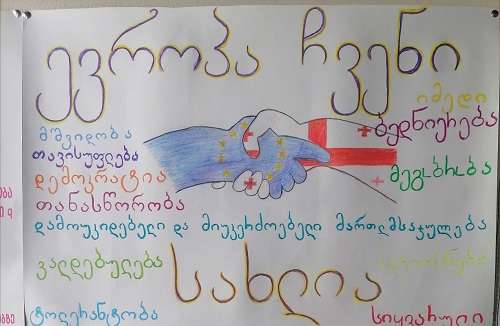 ევროპა ჩვენი
იმედი
მშვიდობა
ბედნიერება
თავისუფლება
დემოკრატია
მეგობრობა
თანასწორობა
დამოუკიდებელი და მიუკერძოებელი მართლმსაჯულება
ვალდებულება
სახლია
ტოლერანტობა
სიყვარული